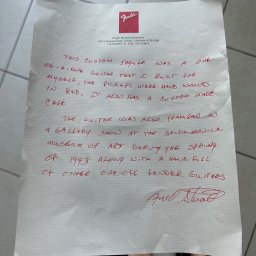 Fender
THIS CUSTOM JAGUAR WAS A ONE
OF-A-KIND GUITAR THAT I BUILT FOR
MYSELF, THE PICKUPS WERE HAND WOUND
IN RED. IT ALSO HAS A CUSTOM MADE
CASE
THE GUITAR WAS ALSO FEATURED IN
A GALLERY SHOW AT THE SANTA MONICA
MUSEUM OF ART DURING THE SPRING
OF 1993 ALONG WITH A HANDFULL
OF OTHER ONE-OFF FENDER GUITARS
Fred Stuart